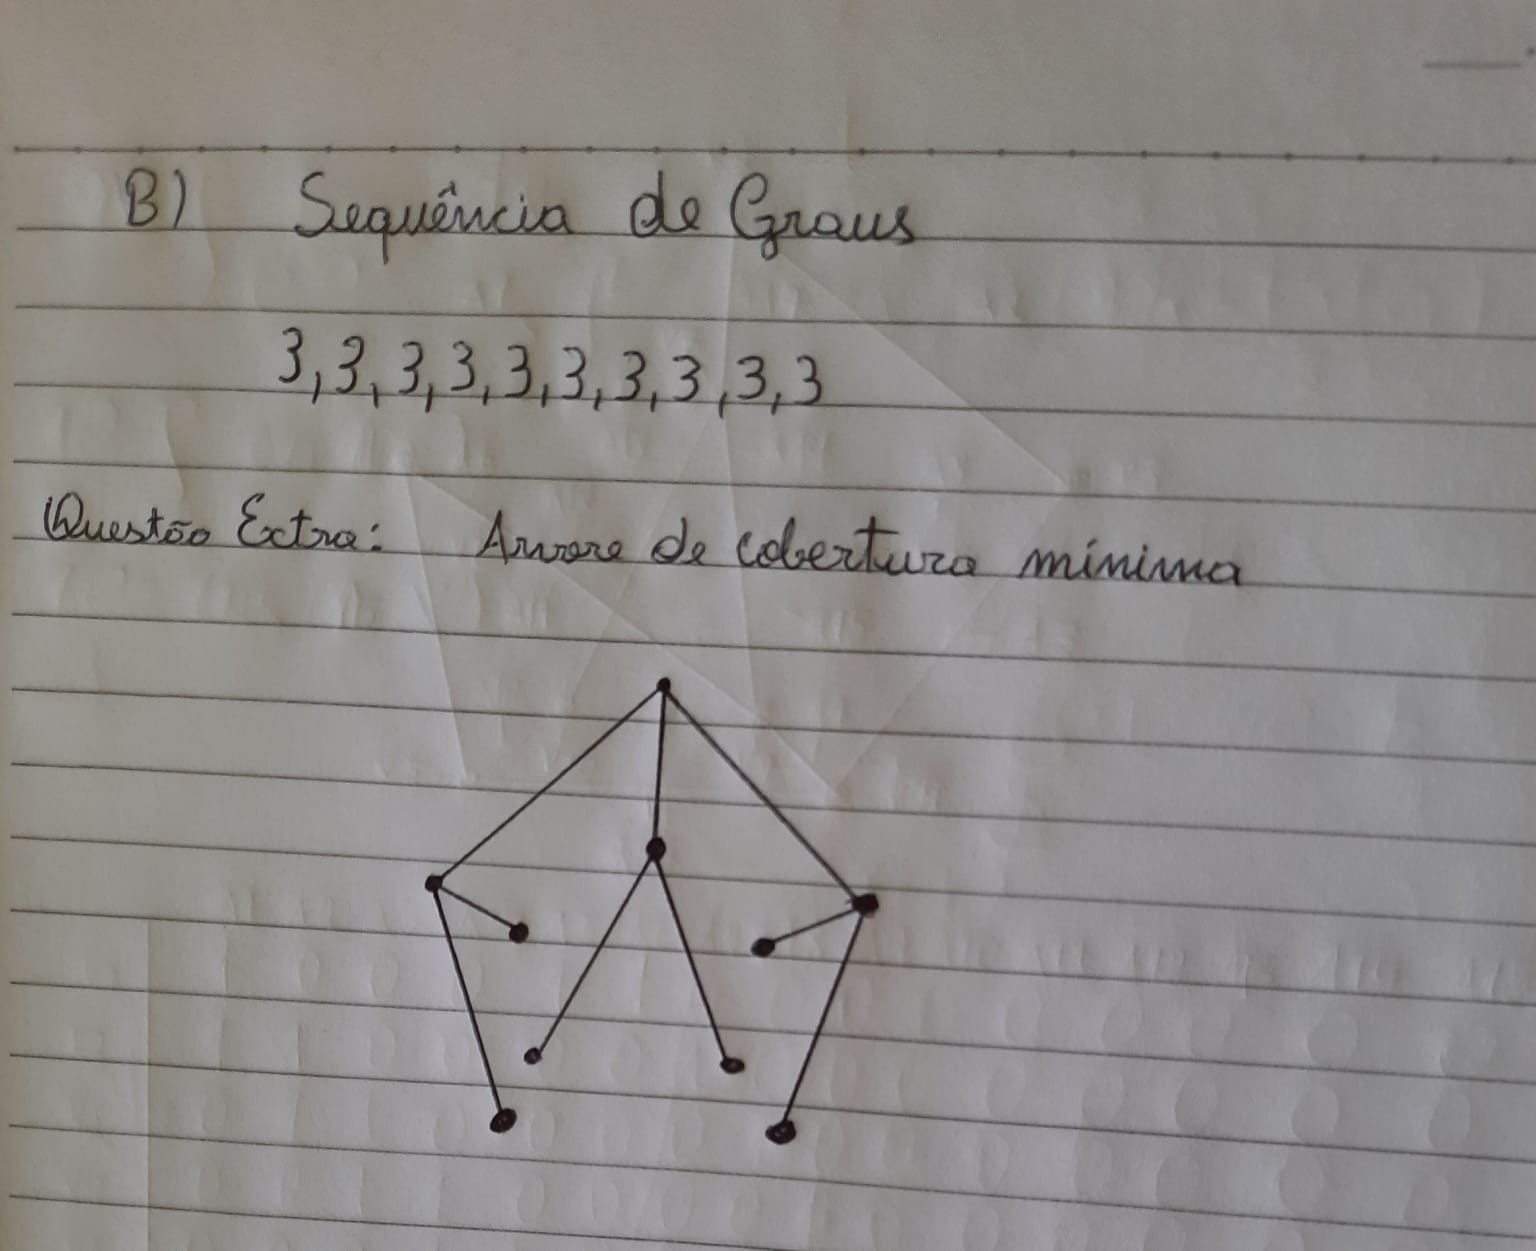 B) Sequência de Graus
3,3,3,3,3,3,3,3,3,3
Questão Extra: Arvore de cobertura mínima